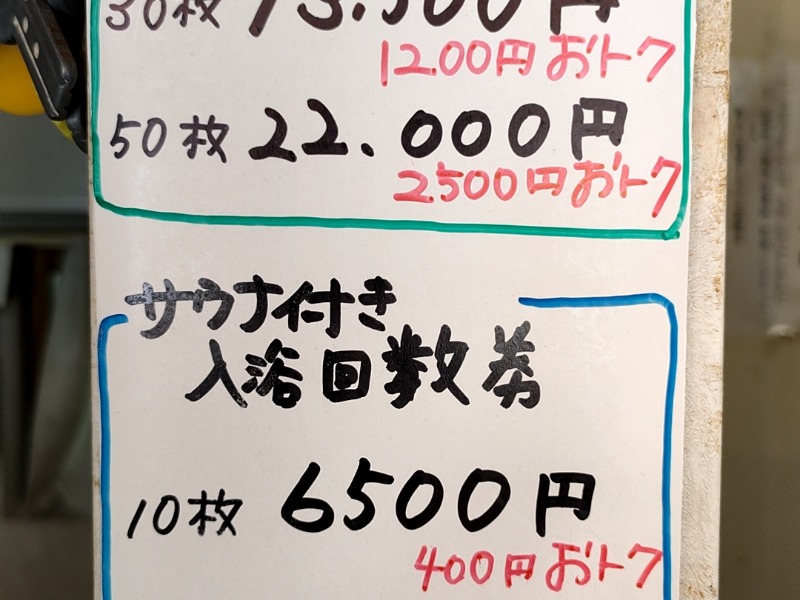 30枚 13.500円
1200円おトク
50枚 22.000円
2500円おトク
サウナ付き
入浴回数券
10枚 6500円
400円おトク